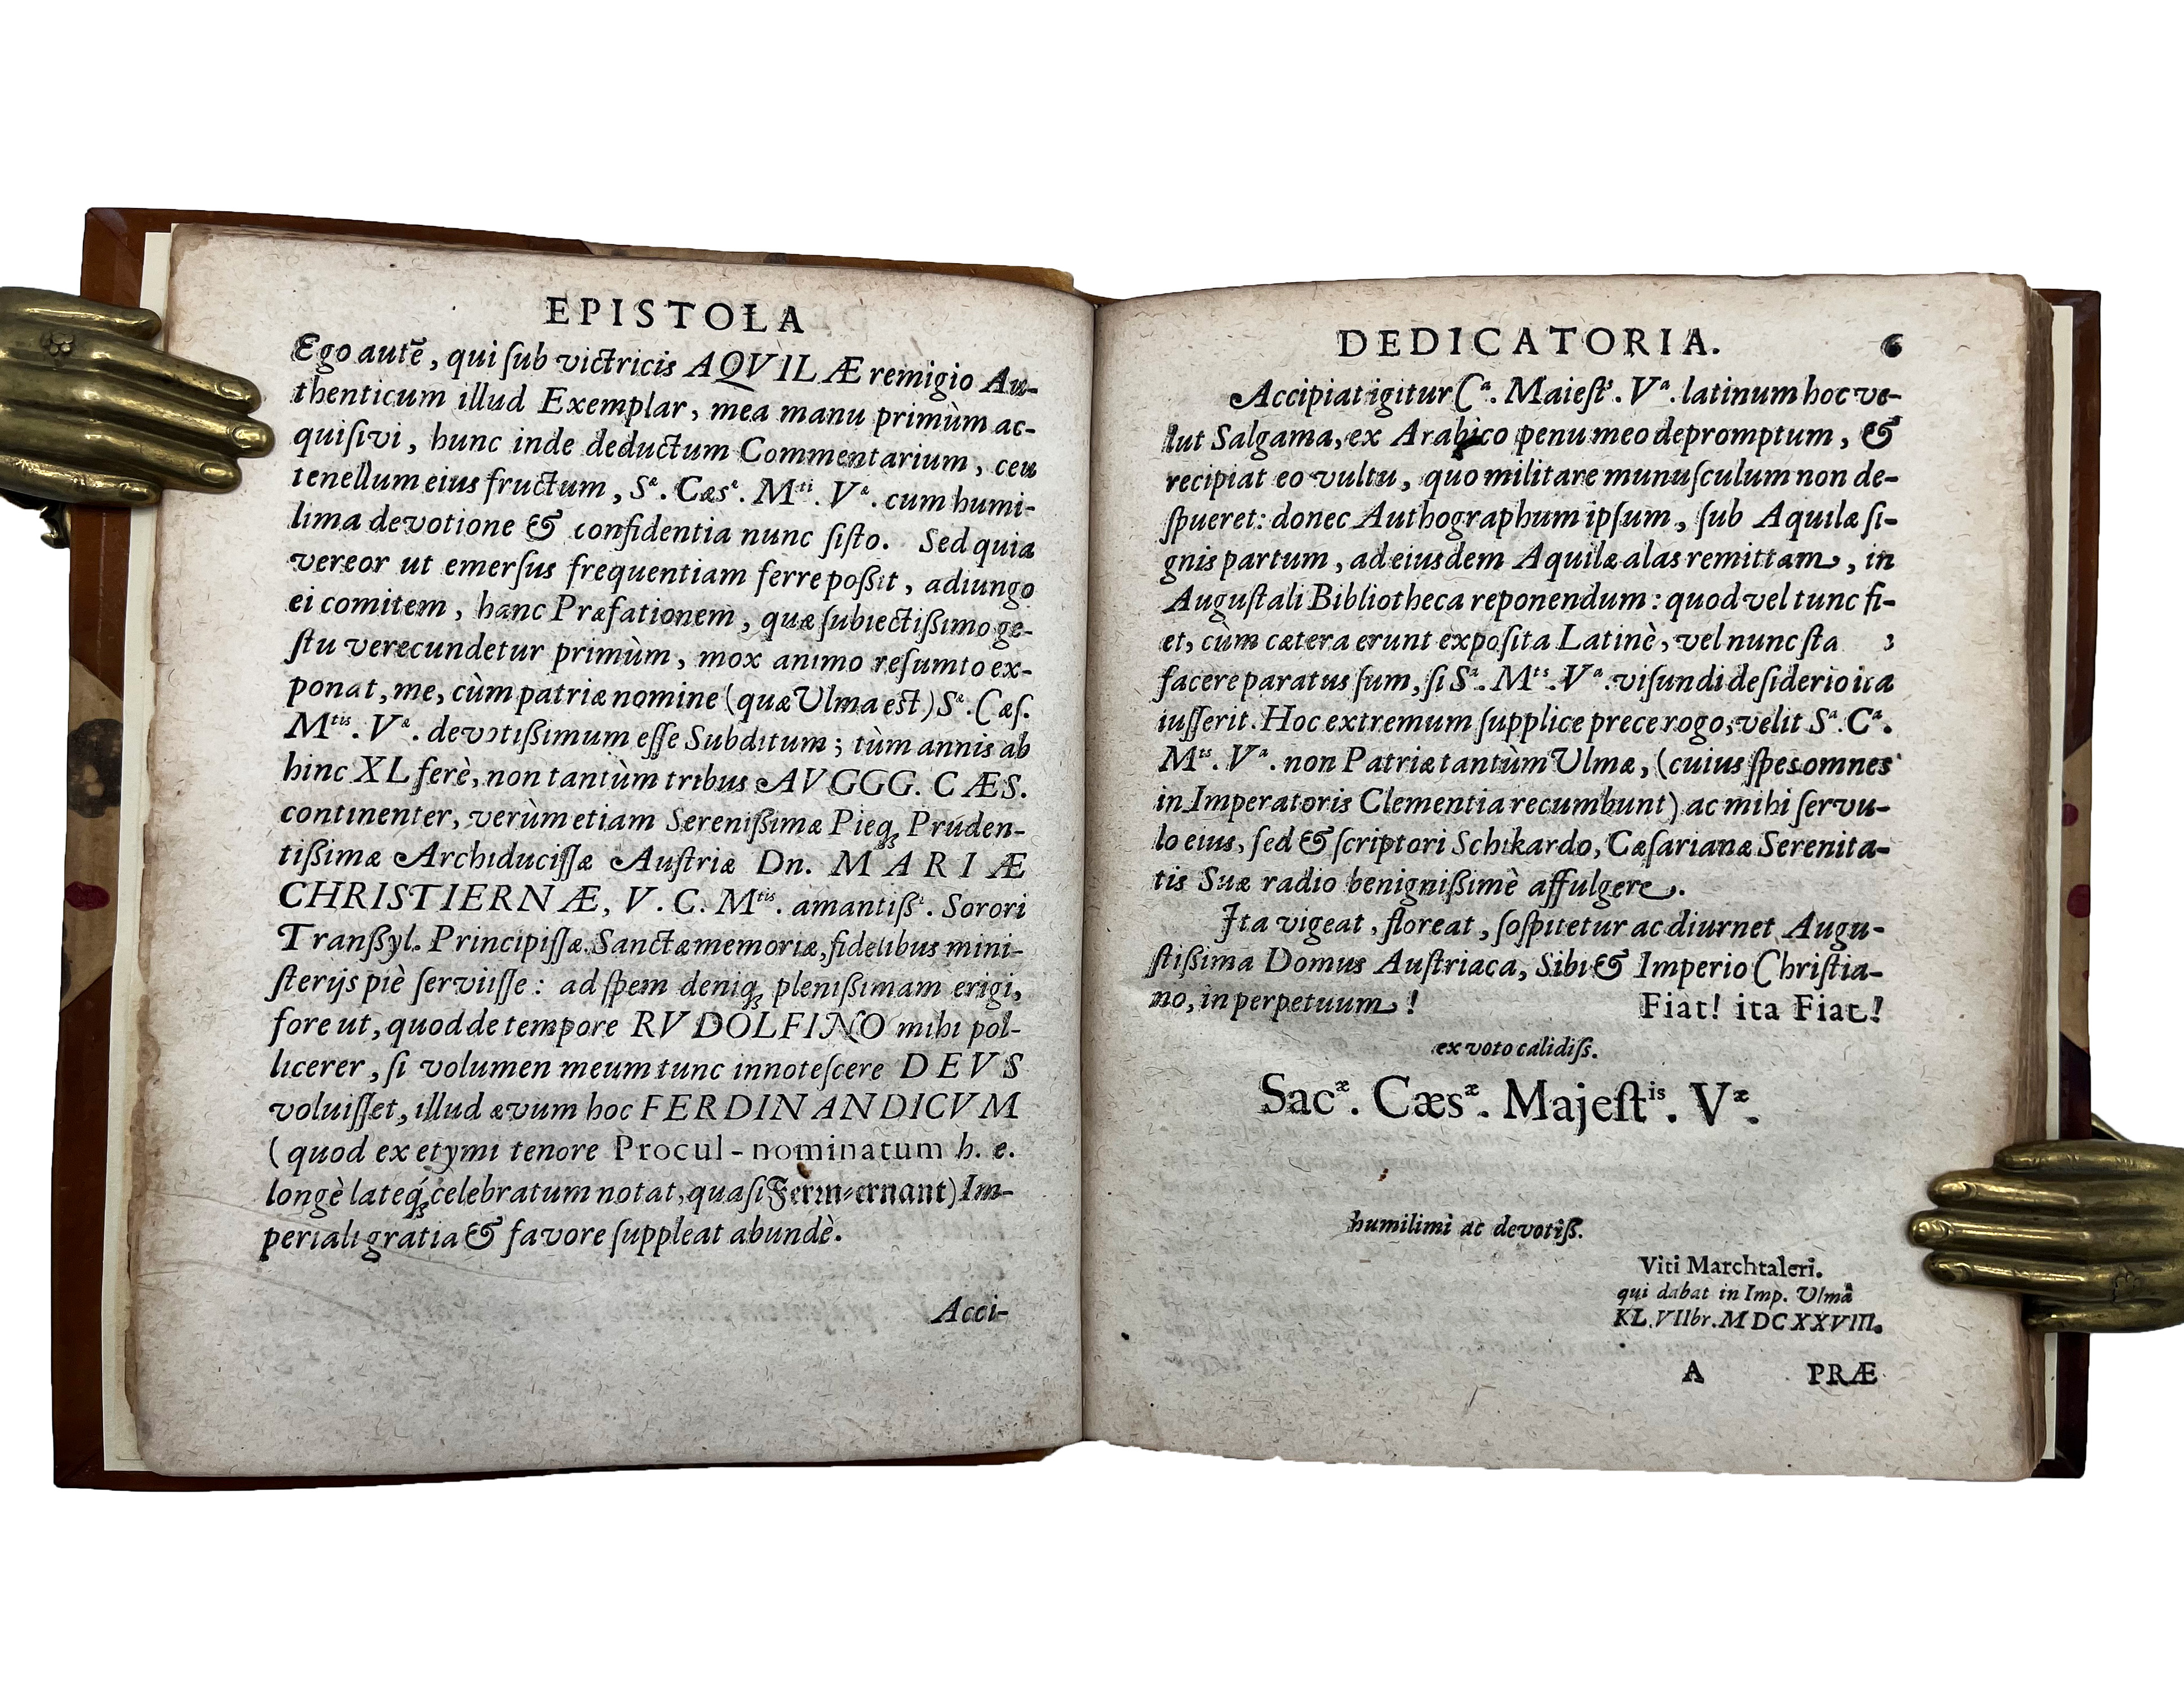 EPISTOLA
Ego autē, qui ſub victricis AQVILÆ remigio Au-
thenticum illud Exemplar, mea manu primùm ac-
quiſivi, hunc inde deductum Commentarium, ceu
tenellum eius fructum, Sᵃ. Cæsᵃ. Mᵗⁱ. Vᵃ. cum humi-
lima devotione & confidentia nunc ſiſto. Sed quia
vereor ut emerſus frequentiam ferre poßit, adiungo
ei comitem, hanc Præfationem, quæ ſubiectißimo ge-
ſtu verecundetur primùm, mox animo reſumto ex-
ponat, me, cùm patriæ nomine (quæ Ulma est) Sᵃ. Cæſ.
Mᵗⁱˢ. Vᵃ. devotißimum eſſe Subditum; tùm annis ab
hinc XL ferè, non tantùm tribus AVGGG. CÆS.
continenter, verùm etiam Serenißimæ Pieq́; Pruden-
tißimæ Archiduciſſæ Auſtriæ Dn. MARIÆ
CHRISTIERNÆ, V. C. Mᵗⁱˢ. amantißᵃ. Sorori
Tranßyl. Principiſſæ. Sanctæ memoriæ, fidelibus mini-
ſterijs piè ſerviiſſe: ad ſpem deniq; plenißimam erigi,
fore ut, quod de tempore RVDOLFINO mihi pol-
licerer, ſi volumen meum tunc innoteſcere DEVS
voluiſſet, illud ævum hoc FERDINANDICVM
(quod ex etymi tenore Procul-nominatum h. e.
longè lateq́; celebratum notat, quaſi Fern-ernant) Im-
periali gratia & favore ſuppleat abundè.
Acci-
DEDICATORIA. 6
Accipiat igitur Cᵃ. Maieſtˢ. Vᵃ. latinum hoc ve-
lut Salgama, ex Arabico penu meo depromptum, &
recipiat eo vultu, quo militare munuſculum non de-
ſpueret: donec Authographum ipſum, ſub Aquilæ ſi-
gnis partum, ad eiusdem Aquilæ alas remittam, in
Auguſtali Bibliotheca reponendum: quod vel tunc fi-
et, cùm cætera erunt expoſita Latinè, vel nunc ſta
facere paratus ſum, ſi Sᵃ. Mᵗˢ. Vᵃ. viſundi deſiderio ita
iuſſerit. Hoc extremum ſupplice prece rogo, velit Sᵃ. Cᵃ.
Mᵗˢ. Vᵃ. non Patriæ tantùm Ulmæ, (cuius ſpes omnes
in Imperatoris Clementia recumbunt) ac mihi ſervu-
lo eius, ſed & ſcriptori Schikardo, Cæſarianæ Serenita-
tis Suæ radio benignißimè affulgere.
Ita vigeat, floreat, ſoſpitetur ac diurnet Augu-
ſtißima Domus Auſtriaca, Sibi & Imperio Chriſtia-
no, in perpetuum! Fiat! ita Fiat!
ex voto calidiſs.
Sacᵆ. Cæsᵆ. Majeſtⁱˢ. Vᵆ.
humilimi ac devotiß.
Viti Marchtaleri.
qui dabat in Imp. Ulmâ
KL. VIIbr. MDCXXVIII.
A PRÆ